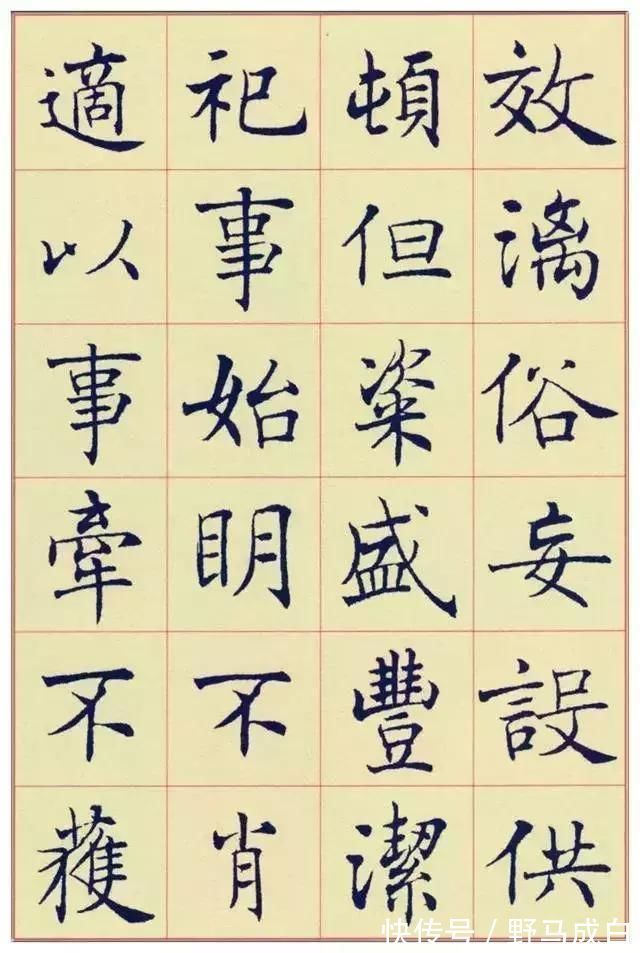 效漓俗妄設供
頓但粢盛豐潔
祀事始明不肖
適以事牽不獲
快传号／野马成白